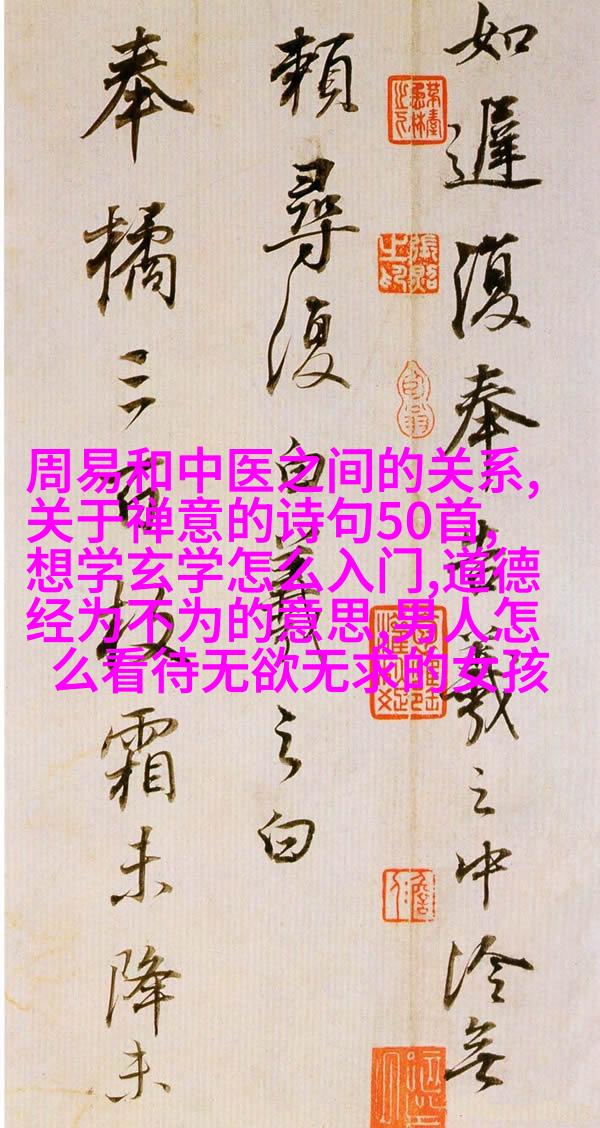 如遲復奉告羲之中冷無
賴尋復白羲之白
奉橘三百枚霜未降未
周易和中医之间的关系,
关于禅意的诗句50首,
想学玄学怎么入门,道德
经为不为的意思,男人怎
么看待无欲无求的女孩